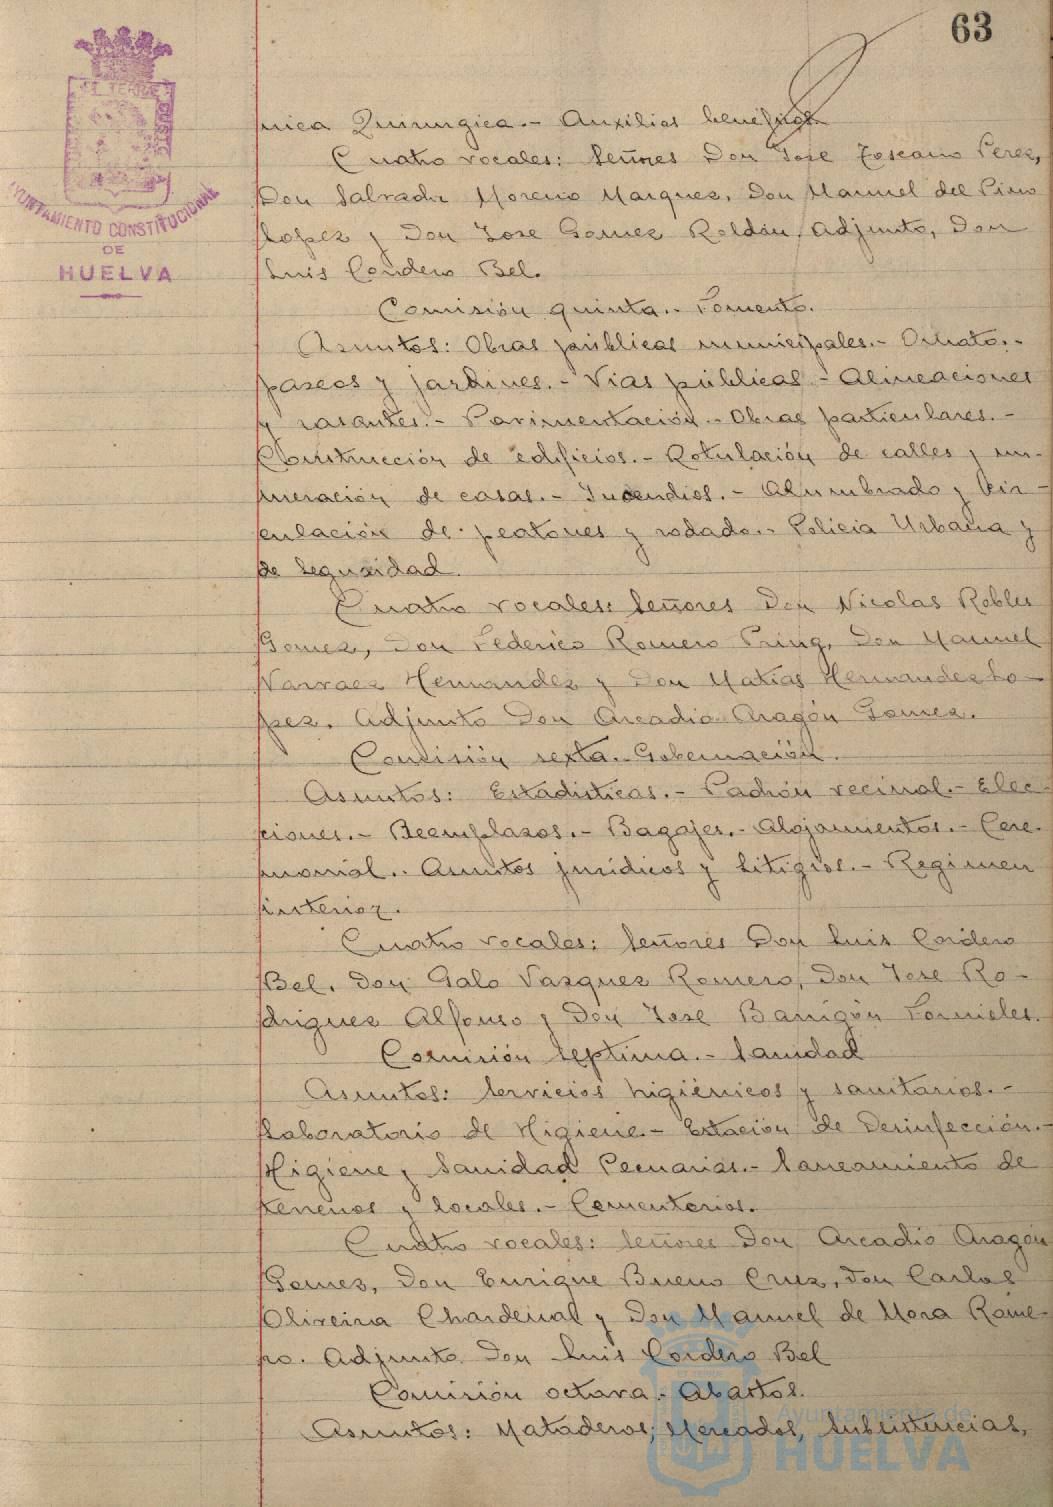 63
EL TERRE CUSTO
AYUNTAMIENTO CONSTITUCIONAL
DE
HUELVA
nica Quirurgica.- Auxilios beneficos
Cuatro vocales: Señores Don Jose Toscano Perez,
Don Salvador Moreno Marquez, Don Manuel del Pino
Lopez y Don Jose Gomez Roldán, adjunto, Don
Luis Cordero Bel.
Comisión quinta.- Fomento.
Asuntos: Obras públicas municipales.- Ornato.-
paseos y jardines.- Vias públicas - Alineaciones
y rasantes.- Pavimentación.- Obras particulares.-
Construcción de edificios.- Rotulación de calles y nu-
meración de casas.- Incendios.- Alumbrado y Cir-
culación de peatones y rodado.- Policia Urbana y
de Seguridad.
Cuatro vocales: Señores Don Nicolas Robles
Gomez, Don Federico Romero Pring, Don Manuel
Narvaez Hernandez y Don Matias Hernandez Lo-
pez. Adjunto Don Arcadio Aragón Gomez.
Comisión sexta.- Gobernación.
Asuntos: Estadisticas.- Padrón vecinal.- Elec-
ciones.- Reemplazos.- Bagajes.- Alojamientos.- Cere-
monial.- Asuntos jurídicos y litigios.- Regimen
interior.
Cuatro vocales: Señores Don Luis Cordero
Bel, Don Galo Vazquez Romero, Don Jose Ro-
driguez Alfonso y Don Jose Barrigón Fornieles.
Comisión Septima.- Sanidad
Asuntos: Servicios higiénicos y sanitarios.-
Laboratorio de Higiene - Estación de Desinfección.-
Higiene y Sanidad Pecuarias.- Saneamiento de
terrenos y locales.- Cementerios.
Cuatro vocales: Señores Don Arcadio Aragón
Gomez, Don Enrique Bueno Cruz, Don Carlos
Oliveira Chardenal y Don Manuel de Mora Rome-
ro. Adjunto Don Luis Cordero Bel
Comisión octava.- Abastos.
Asuntos: Mataderos, Mercados, Subsistencias,
Ayuntamiento de
HUELVA